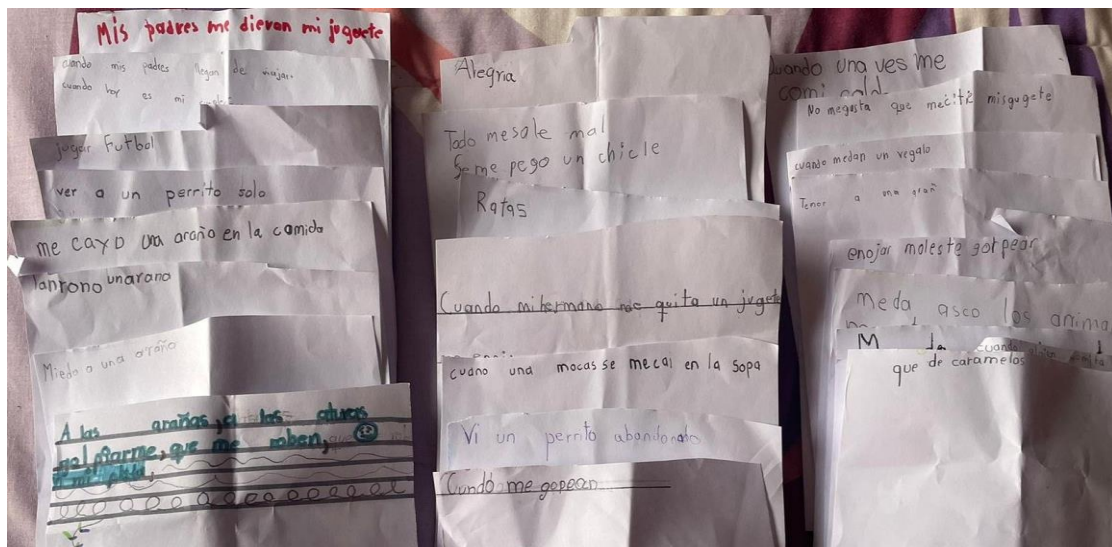 Mis padres me dieron mi jugete
cuando mis padres llegan de viajar
cuando hoy es mi
jugar Futbol
ver a un perrito solo
me cayo una araña en la comida
Miedo a una araña
A las arañas, a las alturas
golpearme, que me roben, que
a mi
Alegria
Todo mesale mal
Seme pego un chicle
Ratas
Cuando mihermano me quita un jugete
cuano una mocas se mecai en la sopa
Vi un perrito abandonado
Cundo me gopean
Cuando una ves me
comi
No megusta que mecitte misgugete
cuando medan un regalo
Tener a una
enojar moleste golpear
Meda, asco los anima
cuando
que de caramelos